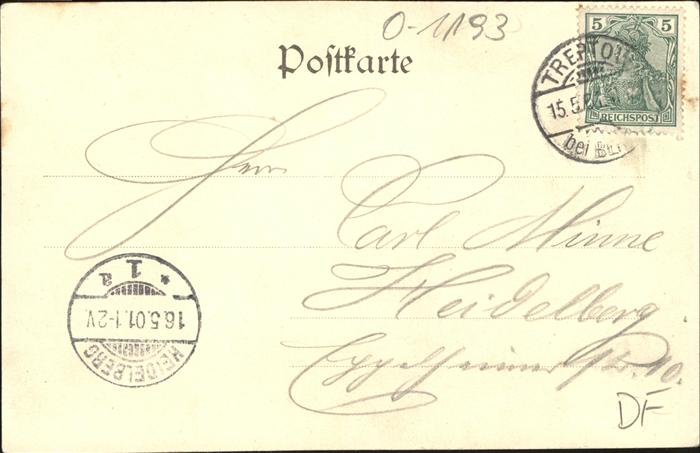 O-1193
5 5
REICHSPOST
TREPTOW
15.5.
bei
Postkarte
Herrn
Carl Minne
Heidelberg
Eppelheimer Str. 10.
* 1 a
16.5.01.1-2V.
HEIDELBERG
DF